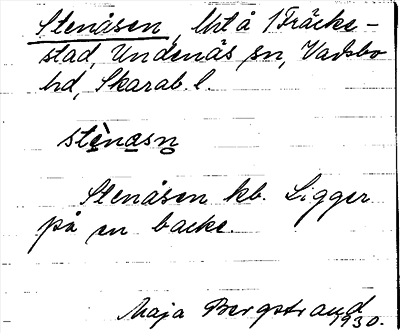 Stenåsen, Urt å 1 Fräcke-
stad, Undenäs sn, Vadsbo
hd, Skarab. l.
stènasn
Stenåsen kb. Ligger
på en backe.
Maja Bergstrand
1930.